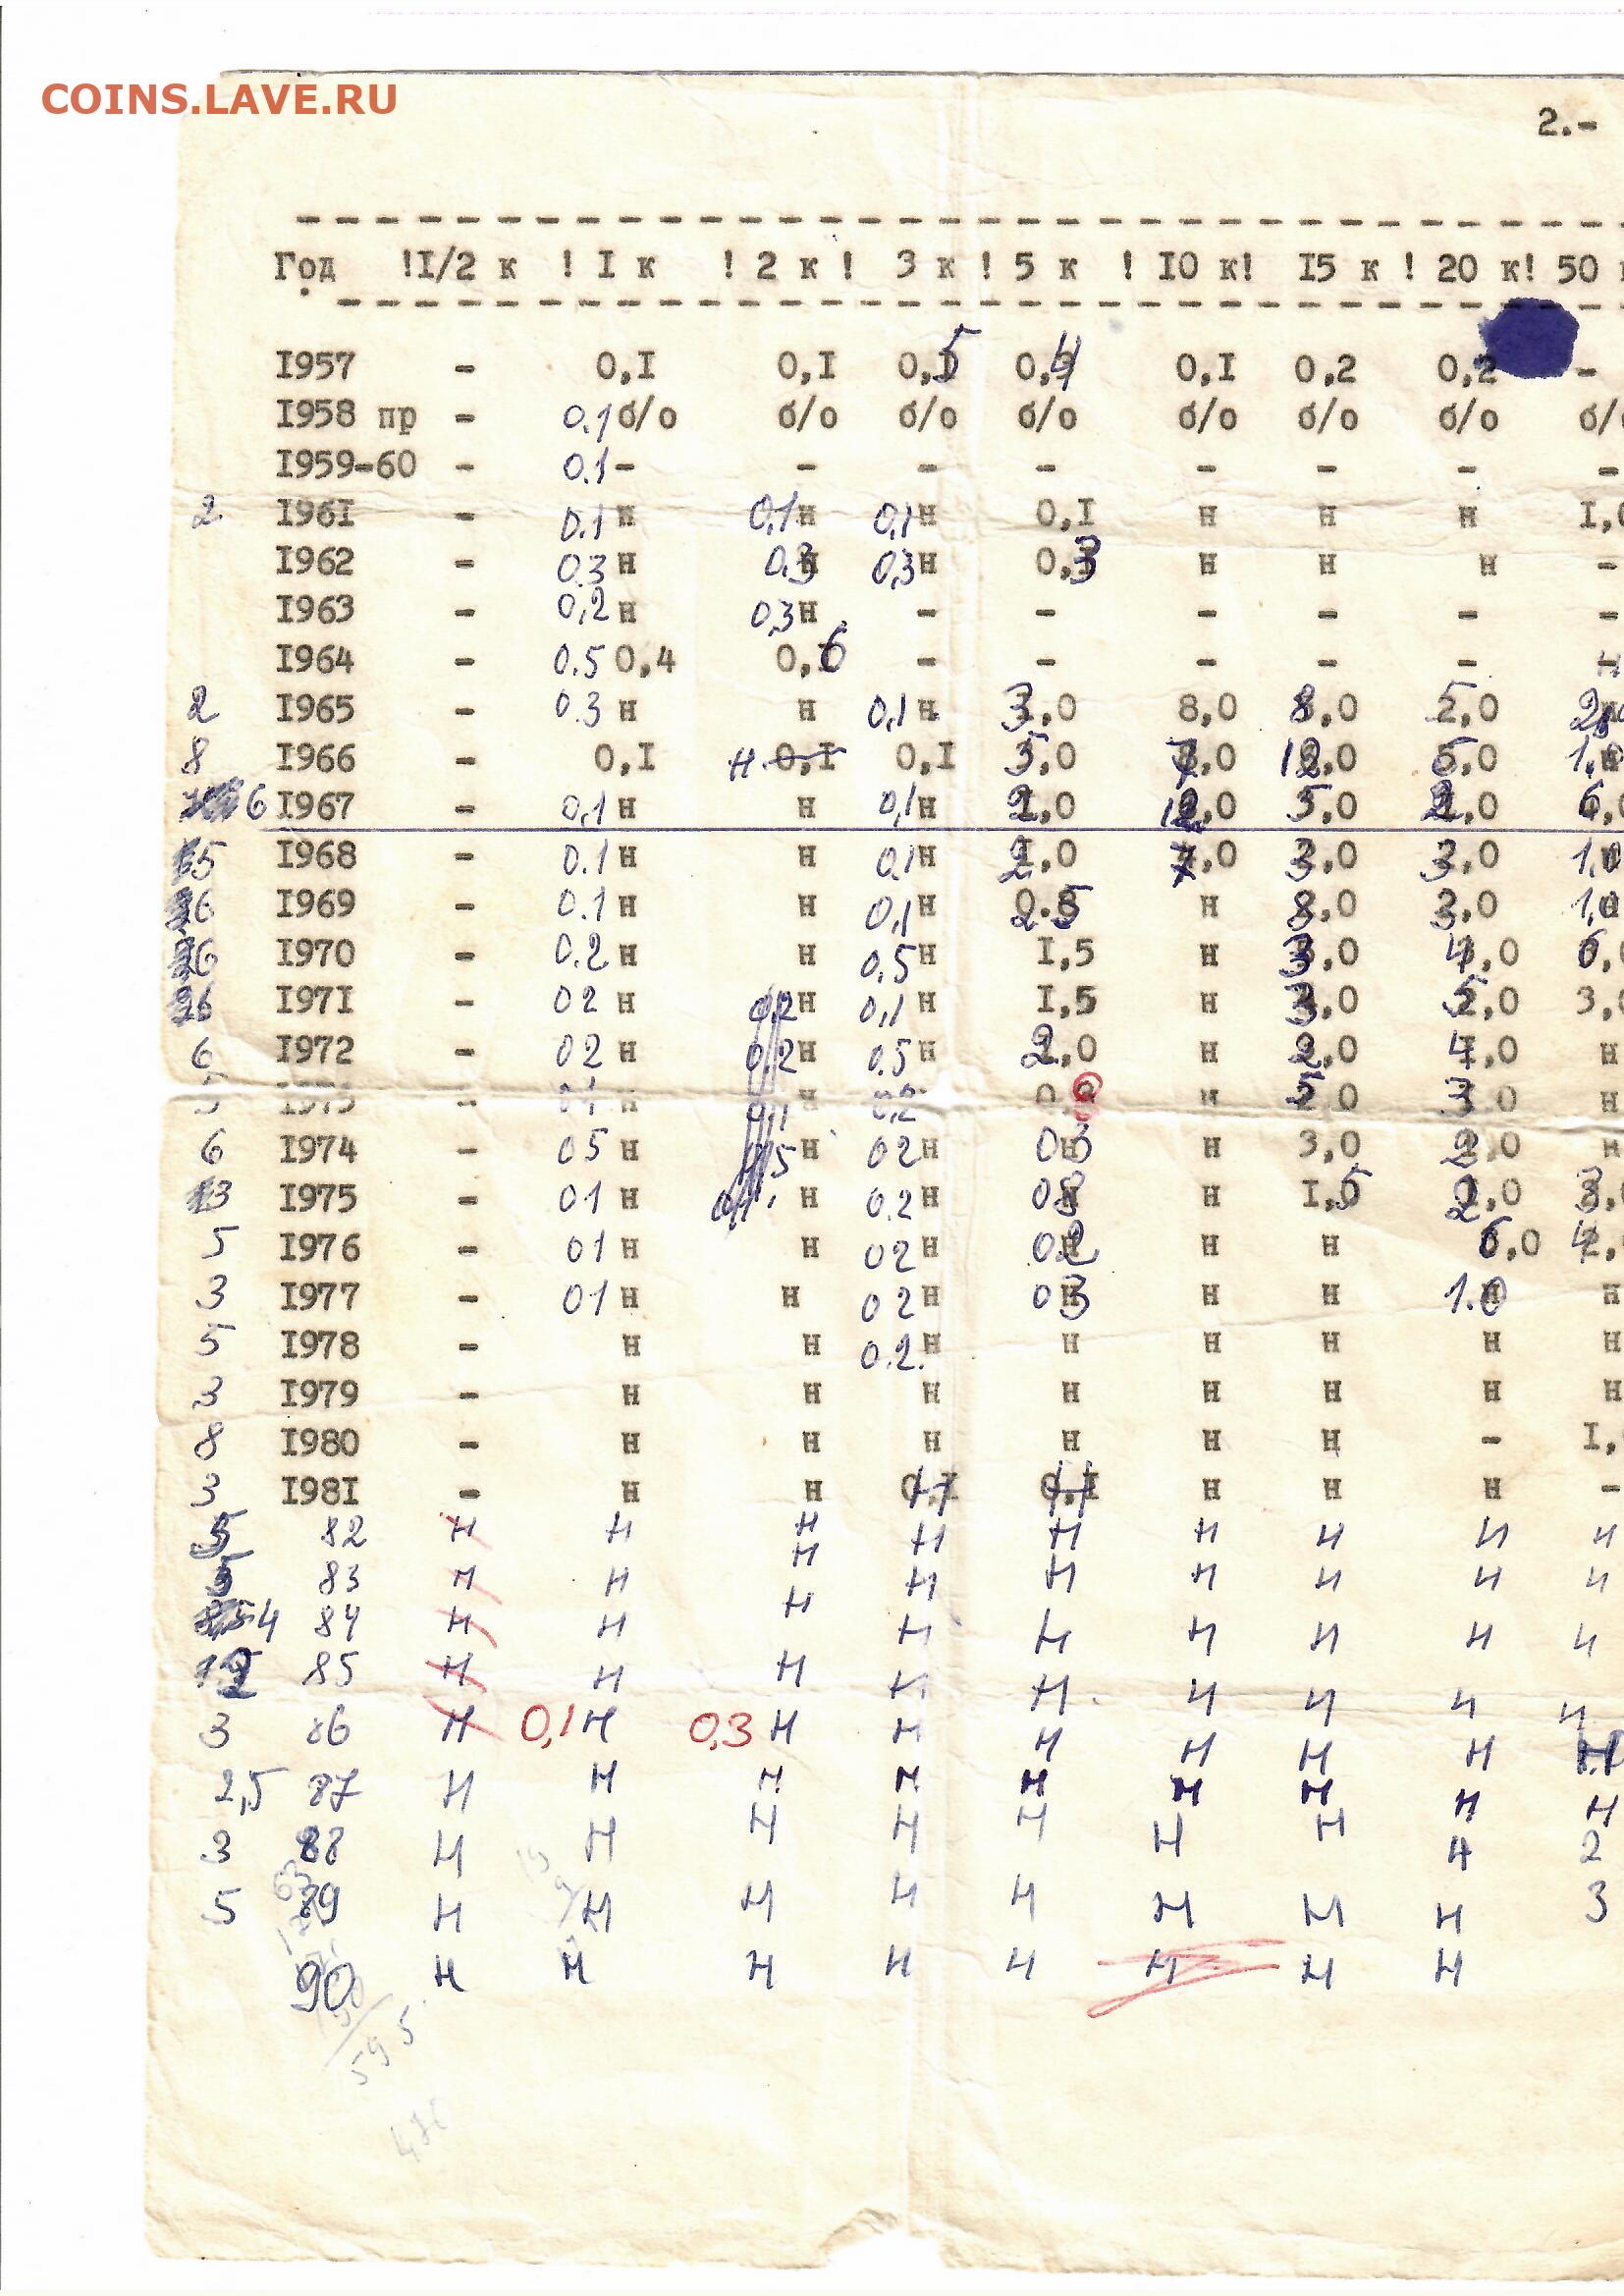 COINS.LAVE.RU
2.-
Год !I/2 к ! I к ! 2 к ! 3 к ! 5 к ! I0 к! I5 к ! 20 к! 50
I957 - 0,I 0,I 0, 5 0, 4 0,I 0,2 0,2 -
I958 пр - 0.1 б/о б/о б/о б/о б/о б/о б/о б/
I959-60 - 0.1 - - - - - - - -
2 I96I - 0.1 н 0,1 н 0,1 н 0,I н н н I,
I962 - 0.3 н 0.3 0,3 н 0, 3 н н н -
I963 - 0,2 н 0,3 н - - - - - -
I964 - 0.5 0,4 0,6 - - - - -
2 I965 - 0.3 н н 0,1 н 3,0 8,0 8,0 5,0 2,
8 I966 - 0,I н 0,I 0,I 5,0 7,0 12,0 5,0 1,
6 I967 - 0,1 н н 0,1 н 2,0 12,0 5,0 2,0 6,
5 I968 - 0.1 н н 0,1 н 2,0 7,0 3,0 3,0 1,0
6 I969 - 0.1 н н 0,1 н 2.5 н 8,0 3,0 1,0
6 I970 - 0.2 н н 0,5 н I,5 н 3,0 4,0 6,
6 I97I - 02 н 0,2 н 0,1 н I,5 н 3,0 5,0 3,
6 I972 - 02 н 0.2 н 0.5 н 2,0 н 2,0 4,0 н
I973 - 01 н 0,1 н 0,2 н 5 0 3 0 н
6 I974 - 05 н н 02 н 03 н 3,0 2,0 н
3 I975 - 01 н н 0.2 н 08 н I,5 2,0 3,
5 I976 - 01 н н 02 н 02 н н 6,0 4,
3 I977 - 01 н н 02 н 03 н н 1.0 н
5 I978 - н н 0.2. н н н н н н
3 I979 - н н н н н н н н
8 I980 - н н н н н н - I,
3 I98I - н н н н н н н -
5 82 н н н н н н н н н
5 83 н н н н н н н н н
4 84 н н н н н н н н н
2 85 н н н н н н н н н
3 86 н 0,1 н 0,3 н н н н н н
2,5 87 н н н н н н н н н
3 88 н н н н н н н 4 2
5 89 н н н н н н н н 3
90 н н н н н н н н
595